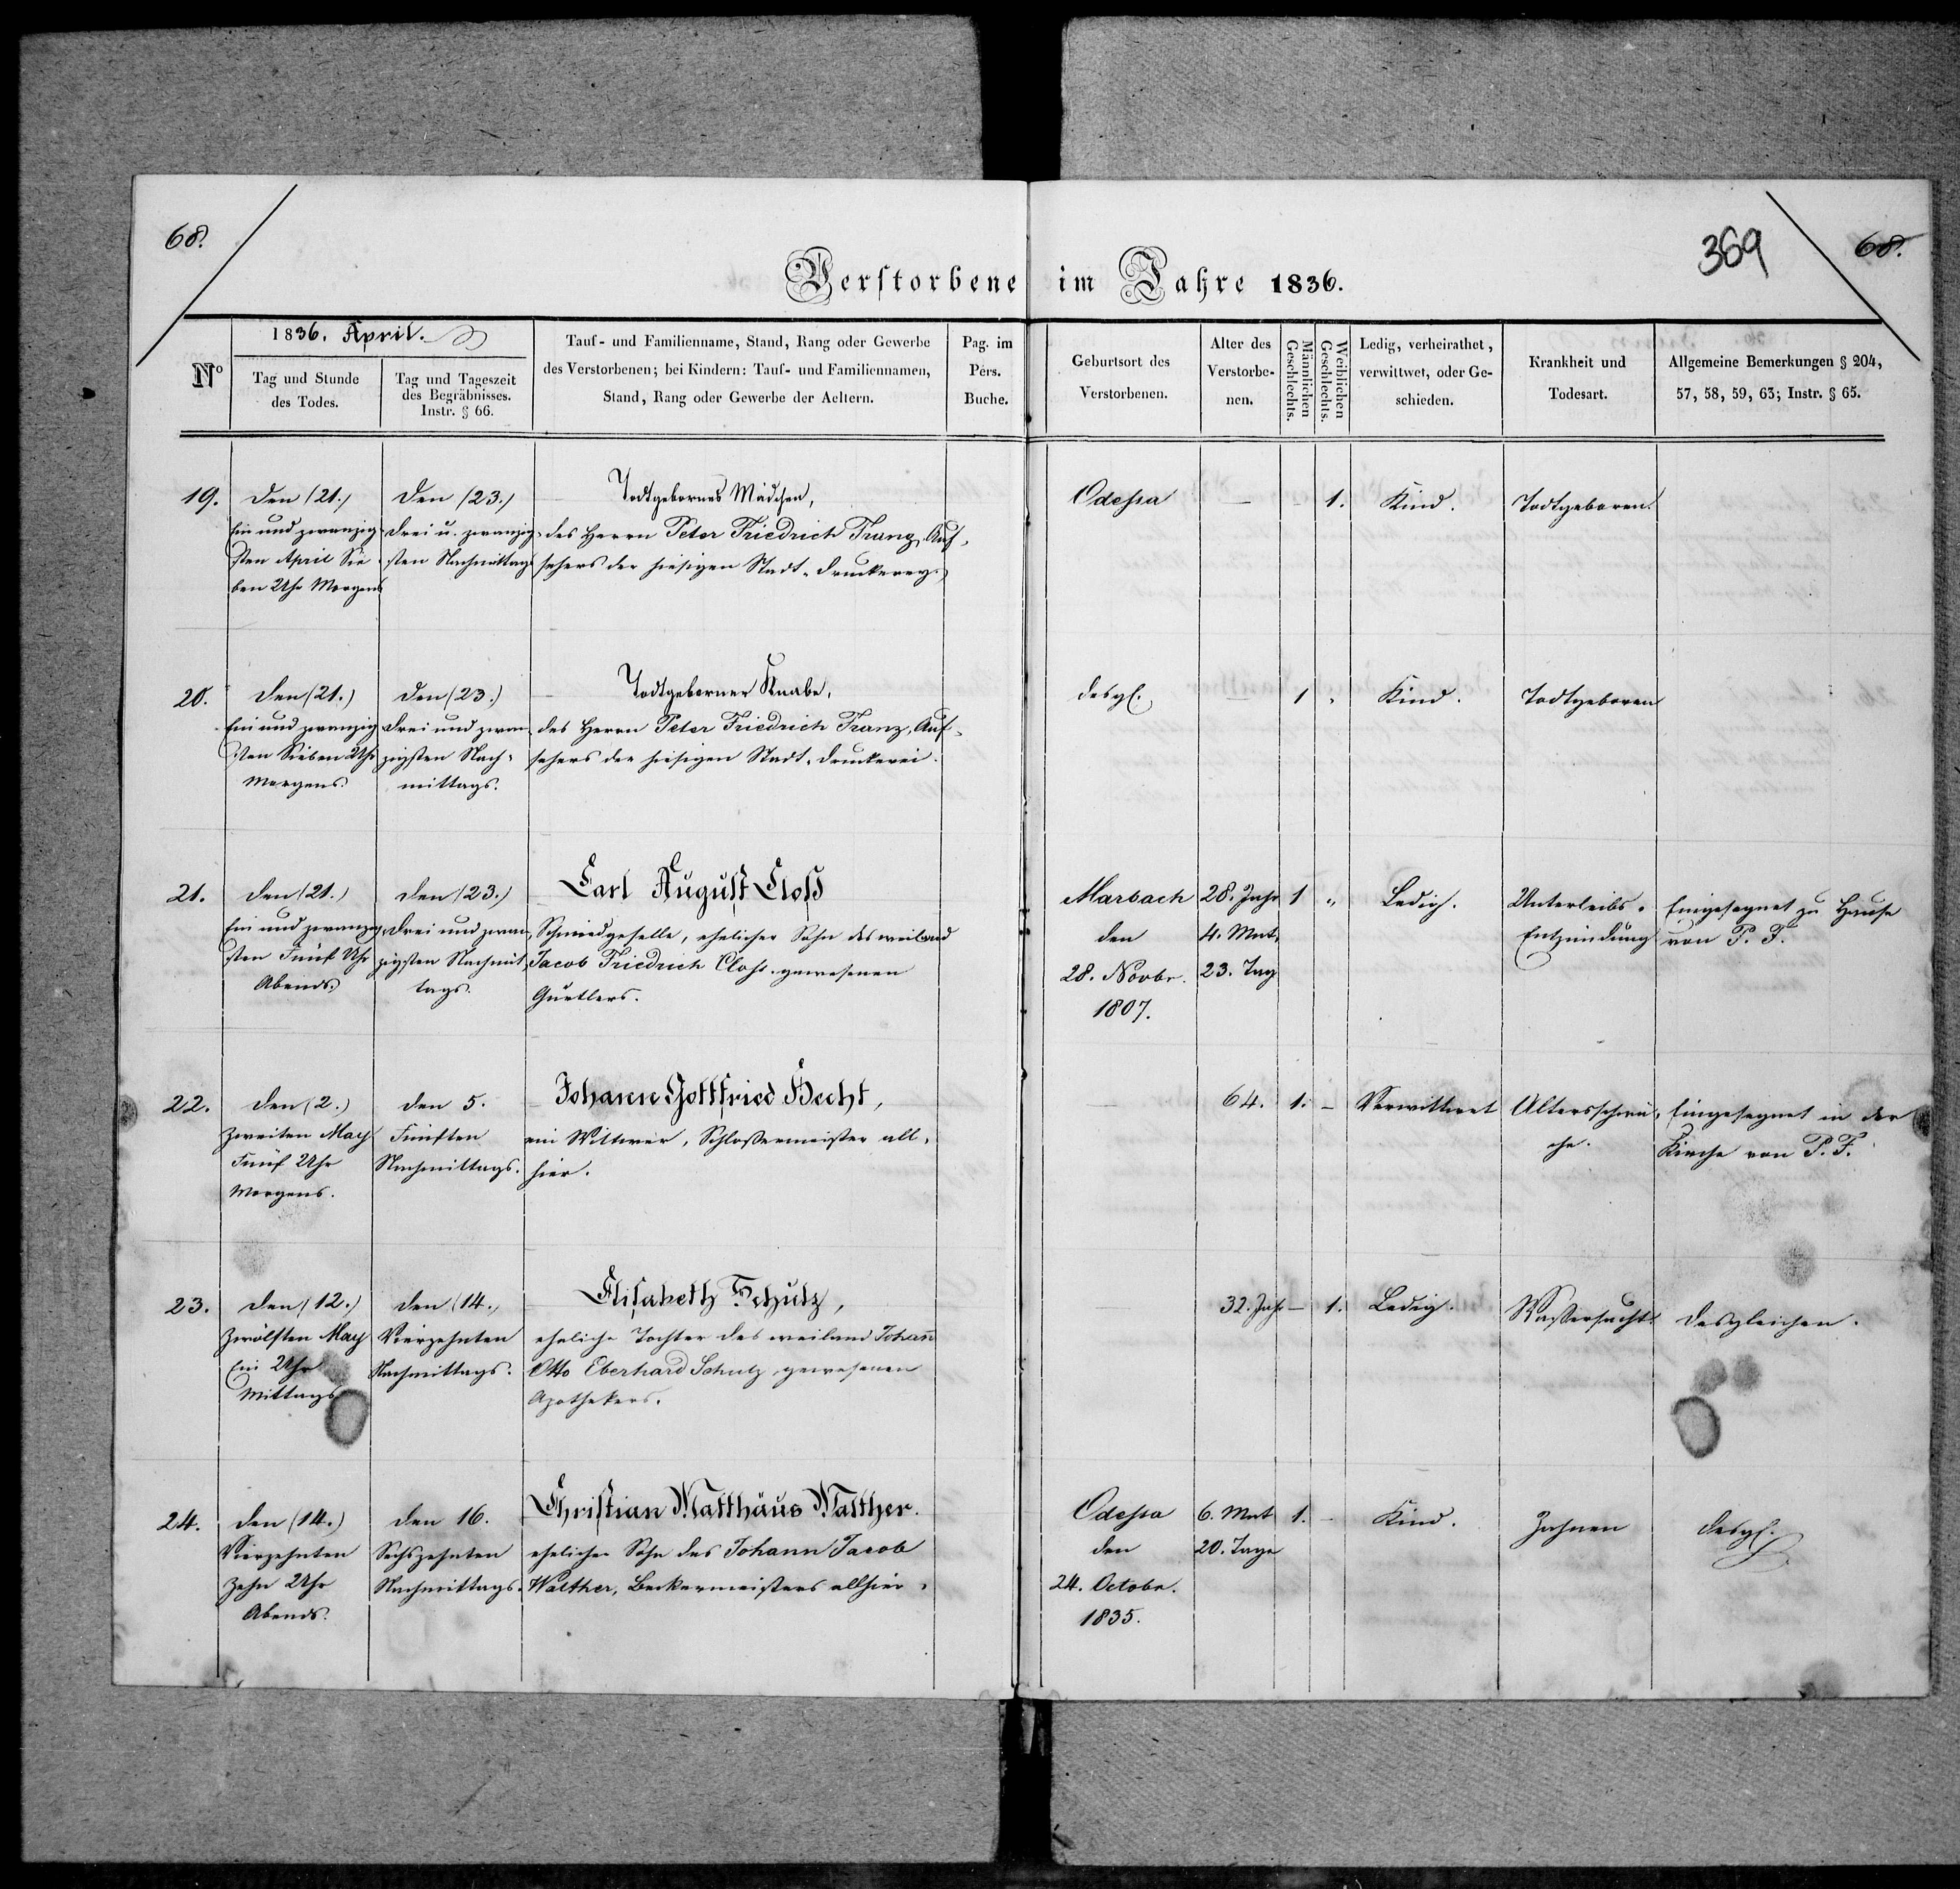 68.
369
68.
Verstorbene im Jahre 1836.
Nº
1836. April.
Tag und Stunde
des Todes.
Tag und Tageszeit
des Begräbnisses.
Instr. § 66.
Tauf- und Familienname, Stand, Rang oder Gewerbe
des Verstorbenen; bei Kindern: Tauf- und Familiennamen,
Stand, Rang oder Gewerbe der Aeltern.
Pag. im
Pers.
Buche.
Geburtsort des
Verstorbenen.
Alter des
Verstorbe-
nen.
Männlichen
Geschlechts.
Weiblichen
Geschlechts.
Ledig, verheirathet,
verwittwet, oder Ge-
schieden.
Krankheit und
Todesart.
Allgemeine Bemerkungen § 204,
57, 58, 59, 63; Instr. § 65.
19.
den (21.)
Ein und zwanzig-
sten April Sie-
ben Uhr Morgens
den (23.)
Drei u. zwanzig-
sten Nachmittags
Todtgebornes Mädchen,
des Herrn Peter Friedrich Franz, Auf-
sehers der hiesigen Stadt-Druckerey.
Odessa
—
-
1.
Kind.
Todtgeboren.
20.
den (21.)
Ein und zwanzig-
sten Sieben Uhr
Morgens.
den (23.)
Drei und zwan-
zigsten Nach-
mittags.
Todtgeborner Knabe,
des Herrn Peter Friedrich Franz, Auf-
sehers der hiesigen Stadt-Druckerei.
desgl.
—
1
"
Kind.
Todtgeboren
21.
den (21.)
Ein und zwanzig-
sten Fünf Uhr
Abends.
den (23.)
Drei und zwan-
zigsten Nachmit-
tags.
Carl August Closs
Schmiedgeselle, ehelicher Sohn des weiland
Jacob Friedrich Closs gewesenen
Gürtlers.
Marbach
den
28. Novbr.
1807.
28. Jahr
4. Mnt.
23. Tag
1
"
Ledig.
Unterleibs-
Entzündung
Eingesegnet zu Hause
von P. F.
22.
den (2.)
Zweiten May
Fünf Uhr
Morgens.
den 5.
Fünften
Nachmittags.
Johann Gottfried Hecht,
ein Wittwer, Schlossermeister all-
hier.
—
64.
1.
-
Verwittwet
Altersschwä-
che.
Eingesegnet in der
Kirche von P. F.
23.
den (12.)
Zwölften May
Ein Uhr
Mittags
den (14.)
Vierzehnten
Nachmittags.
Elisabeth Schulz,
eheliche Tochter des weiland Johann
Otto Eberhard Schulz gewesenen
Apothekers.
32. Jahr
—
1.
Ledig.
Wassersucht
desgleichen.
24.
den (14.)
Vierzehnten
Zehn Uhr
Abends.
den 16.
Sechszehnten
Nachmittags.
Christian Matthäus Walther.
ehelicher Sohn des Johann Jacob
Walther, Beckermeisters allhier.
Odessa
den
24. Octobr.
1835.
6. Mnt
20. Tage
1.
-
Kind.
Zahnen
desgl.